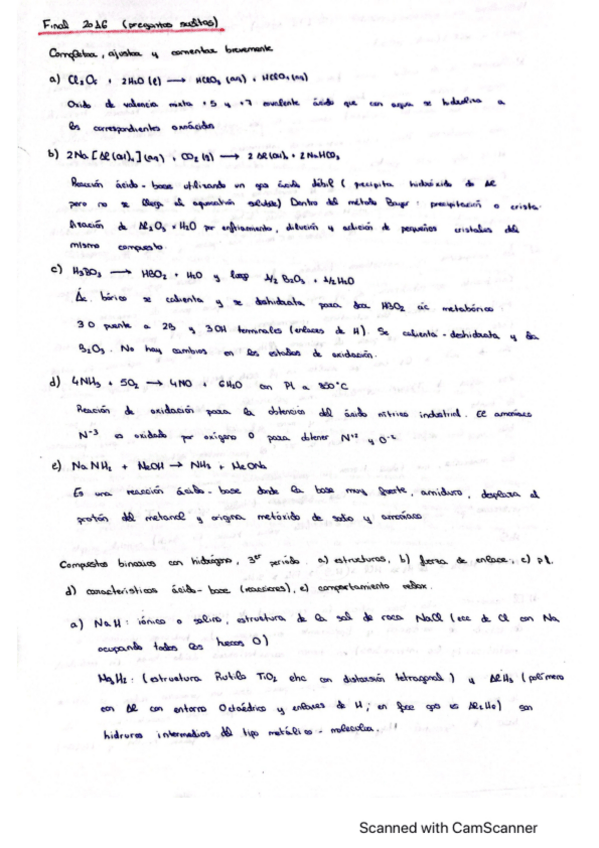 Final 2016 (preguntas sueltas)
Completar, ajustar y comentar brevemente
a) Cl2O6 + 2H2O (l) → HClO3 (aq) + HClO4 (aq)
Oxido de valencia mixta +5 y +7 covalente ácido que con agua se hidroliza a
los correspondientes oxoácidos
b) 2Na[Al(OH)4] (aq) + CO2 (g) → 2 Al(OH)3 + 2NaHCO3
Reacción ácido-base utilizando un gas ácido débil (precipita hidróxido de Al
pero no se llega al aquocatión soluble) Dentro del método Bayer: precipitación o crista-
lización de Al2O3 · H2O por enfriamiento, dilución y adición de pequeños cristales del
mismo compuesto.
c) H3BO3 → HBO2 + H2O y luego 1/2 B2O3 + 1/2 H2O
Ác. bórico se calienta y se deshidrata para dar HBO2 ác metabórico:
3 O puente a 2B y 3 OH terminales (enlaces de H). Se calienta - deshidrata y da
B2O3. No hay cambios en los estados de oxidación.
d) 4NH3 + 5O2 → 4NO + 6H2O con Pt a 850°C
Reacción de oxidación para la obtención del ácido nítrico industrial. El amoniaco
N-3 es oxidado por oxígeno O para obtener N+2 y O-2
e) NaNH2 + MeOH → NH3 + MeONa
Es una reacción ácido-base donde la base muy fuerte, amiduro, desplaza el
protón del metanol y origina metóxido de sodio y amoniaco.
Compuestos binarios con hidrógeno, 3er periodo a) estructuras, b) fuerza de enlace, c) p.f.
d) características ácido-base (reacciones), e) comportamiento redox.
a) NaH: iónico o salino, estructura de la sal de roca NaCl (ecc de Cl con Na
ocupando todos los huecos O)
MgH2: (estructura Rutilo TiO2 ehc con distorsión tetragonal) y AlH3 (polímero
con Al con entorno Octaédrico y enlaces de H, en fase gas es Al2H6) son
hidruros intermedios del tipo metálico - molecular.
Scanned with CamScanner